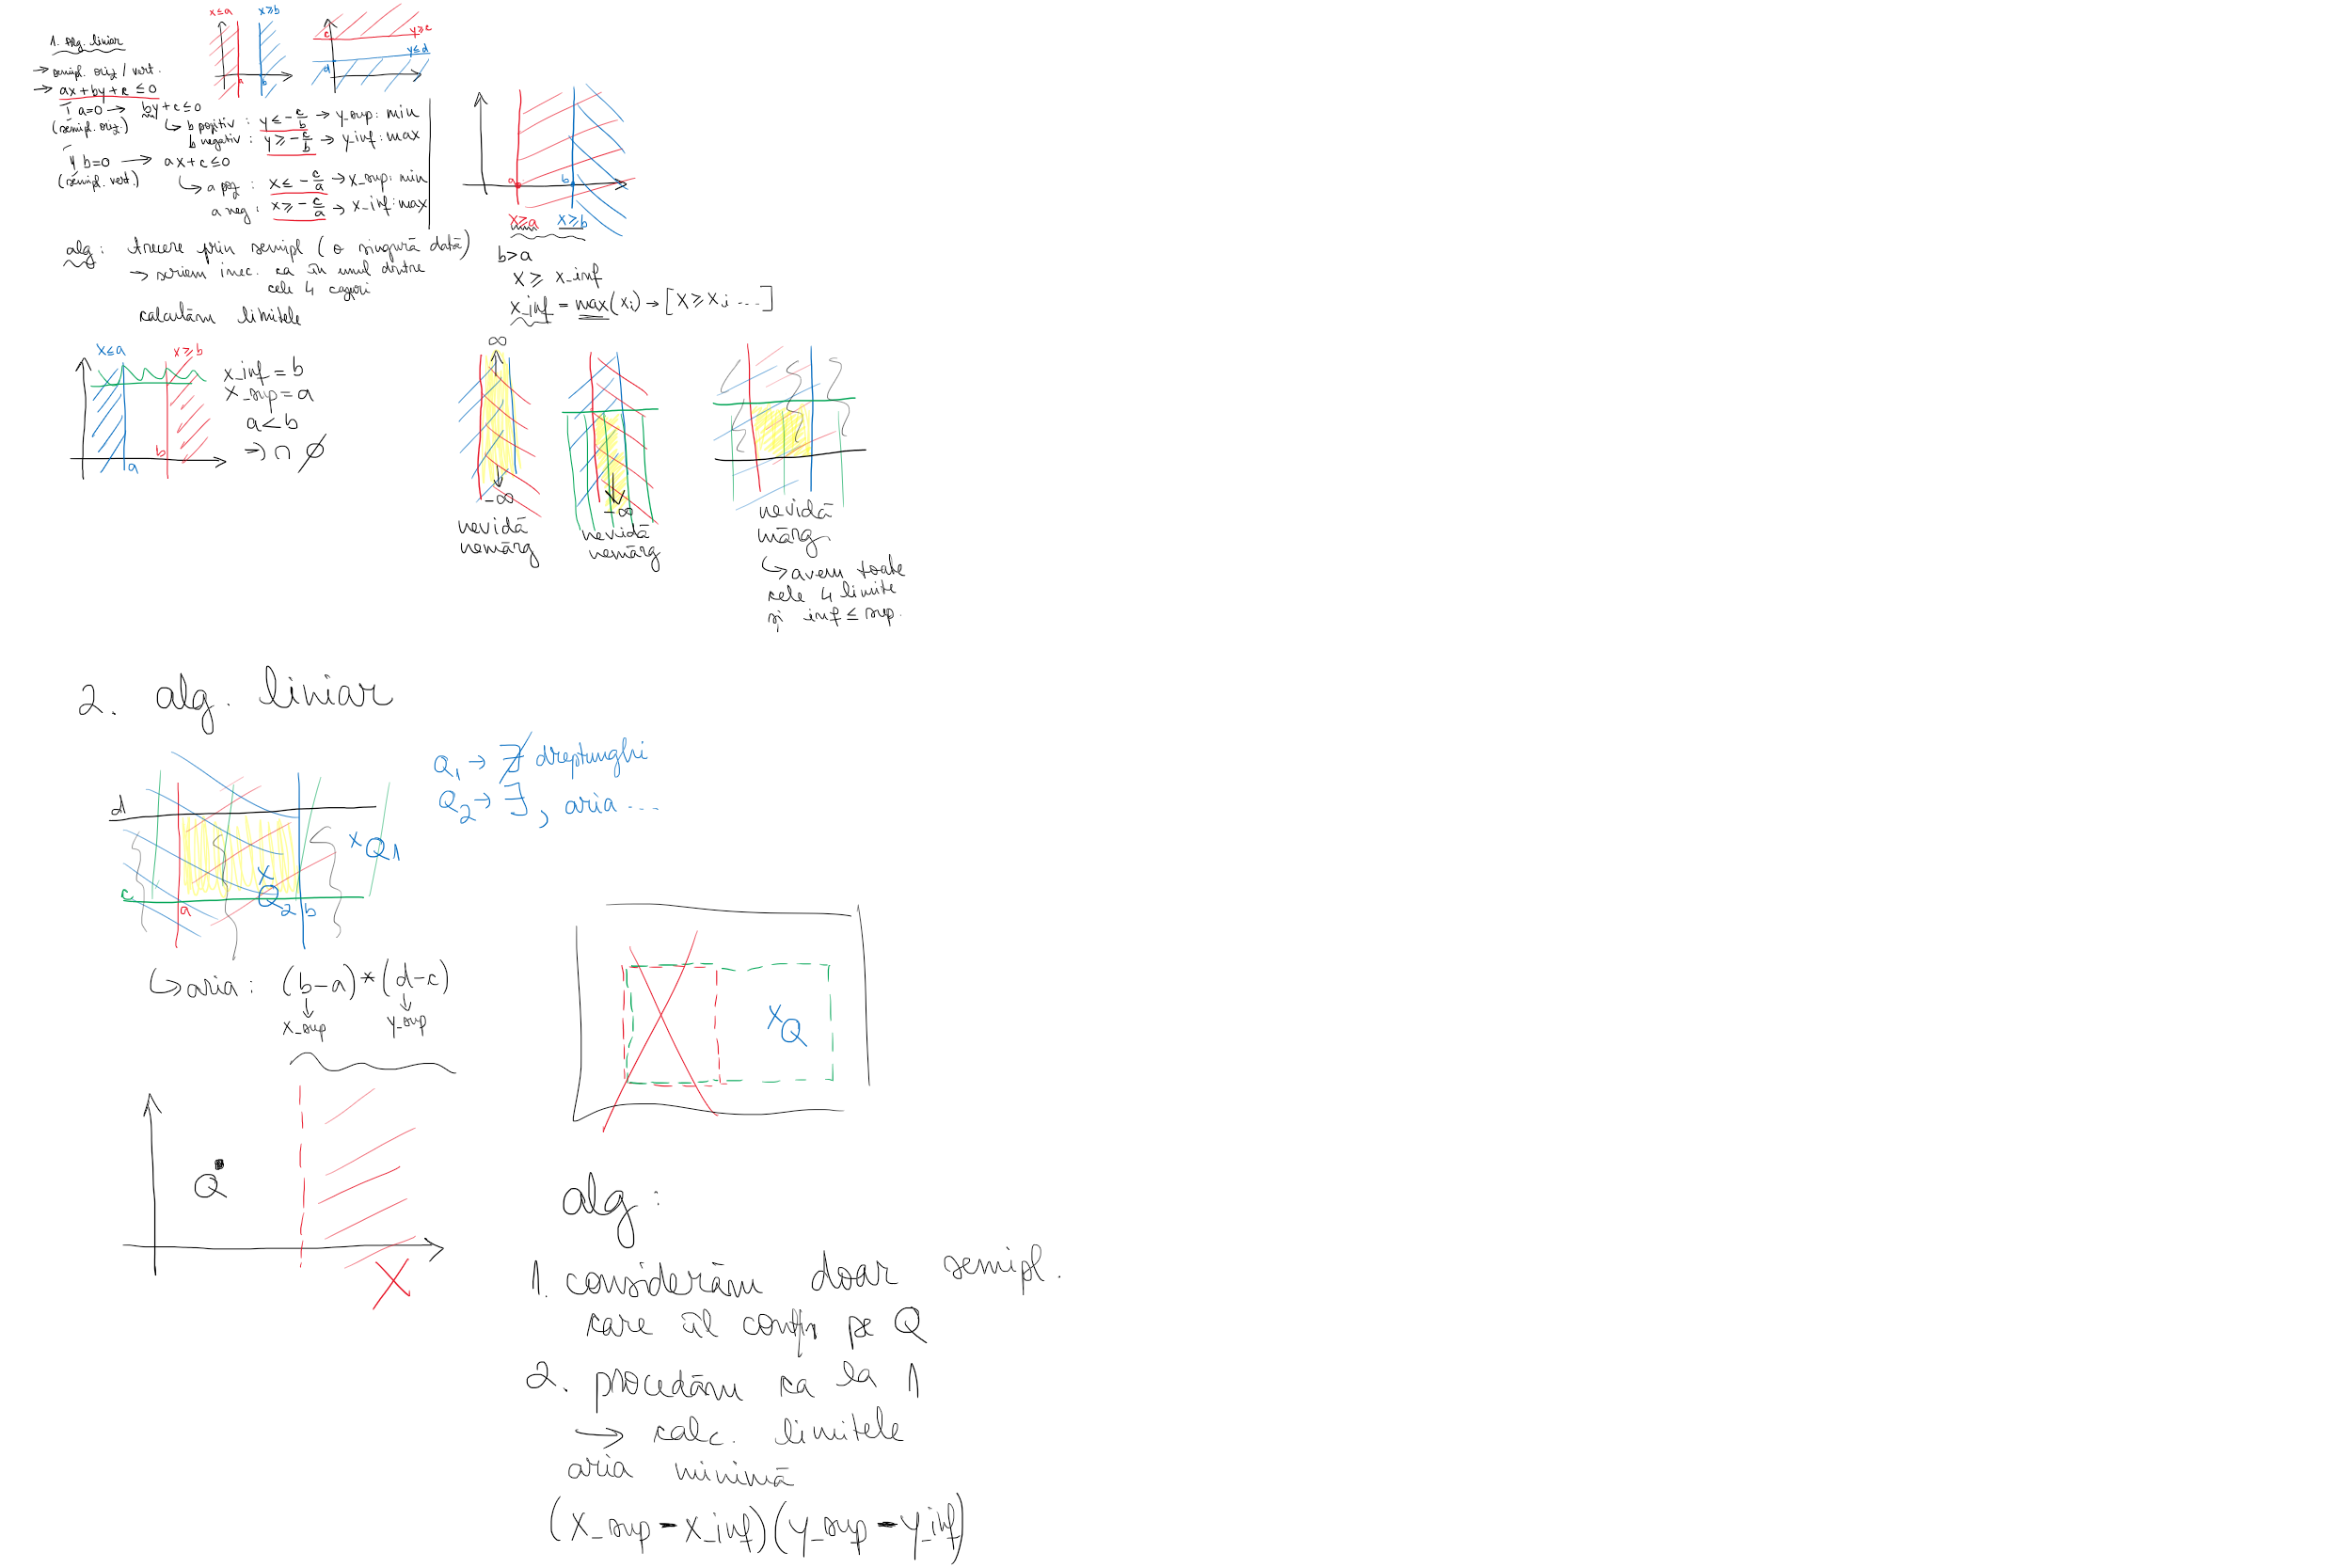 1. Alg. liniar
→ semipl. oriz / vert.
→ ax+by+c ≤ 0
a=0 → by+c≤0
(semipl. oriz.)
↳ b pozitiv : y ≤ -c/b → y_sup: min
b negativ : y ≥ -c/b → y_inf: max
b=0 → ax+c≤0
(semipl. vert.)
↳ a poz : x ≤ -c/a → x_sup: min
a neg : x ≥ -c/a → x_inf: max
x≤a
x≥b
a
b
c
y≥c
y≤d
d
a
b
x≥a x≥b
b>a
x ≥ x_inf
x_inf = max(xi) → [x ≥ xi ...]
alg: trecere prin semipl (o singură dată)
→ scriem inec. ca în unul dintre
cele 4 cazuri
calculăm limitele
x≤a
x≥b
a
b
x_inf = b
x_sup = a
a<b
⇒ ∩ ∅
∞
-∞
nevidă
nemărg
-∞
nevidă
nemărg
nevidă
mărg.
↳ avem toate
cele 4 limite
și inf ≤ sup.
2. alg. liniar
Q1 → ∄ dreptunghi
Q2 → ∃, aria ...
d
x Q1
c
a
x
Q2
b
↳ aria: (b-a)*(d-c)
x_sup
y_sup
x Q
Q
X
alg:
1. considerăm doar semipl.
care îl conțin pe Q
2. procedăm ca la 1
→ calc. limitele
aria minimă
(x_sup - x_inf)(y_sup - y_inf)